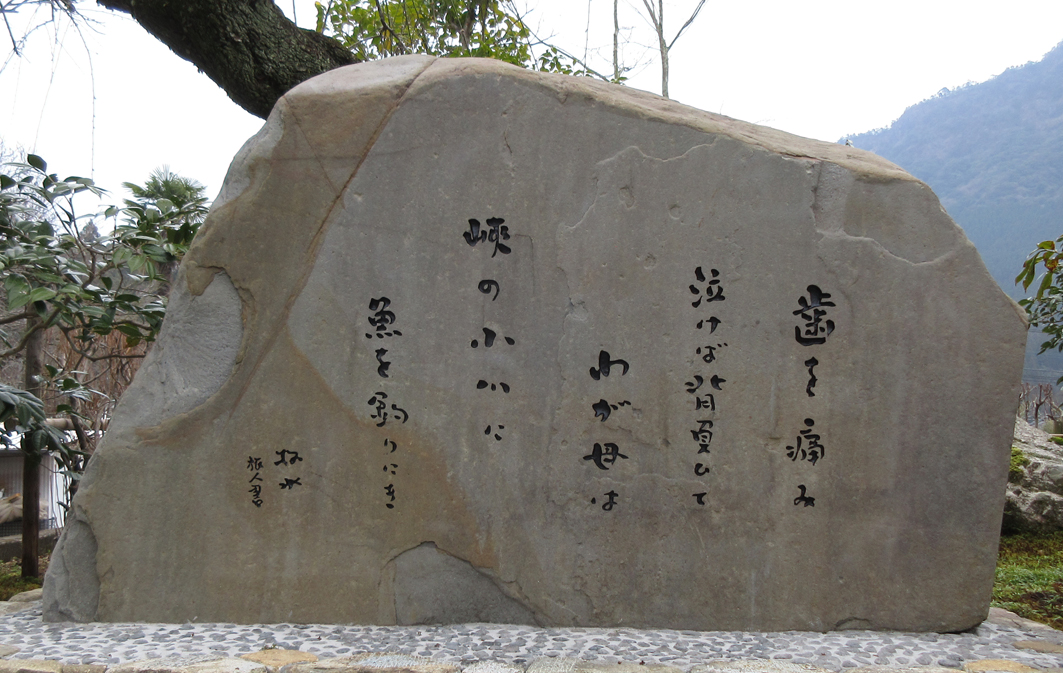 歯を痛み
泣けば背負ひて
わが母は
峡の小川に
魚を釣りにき
牧水
旅人書